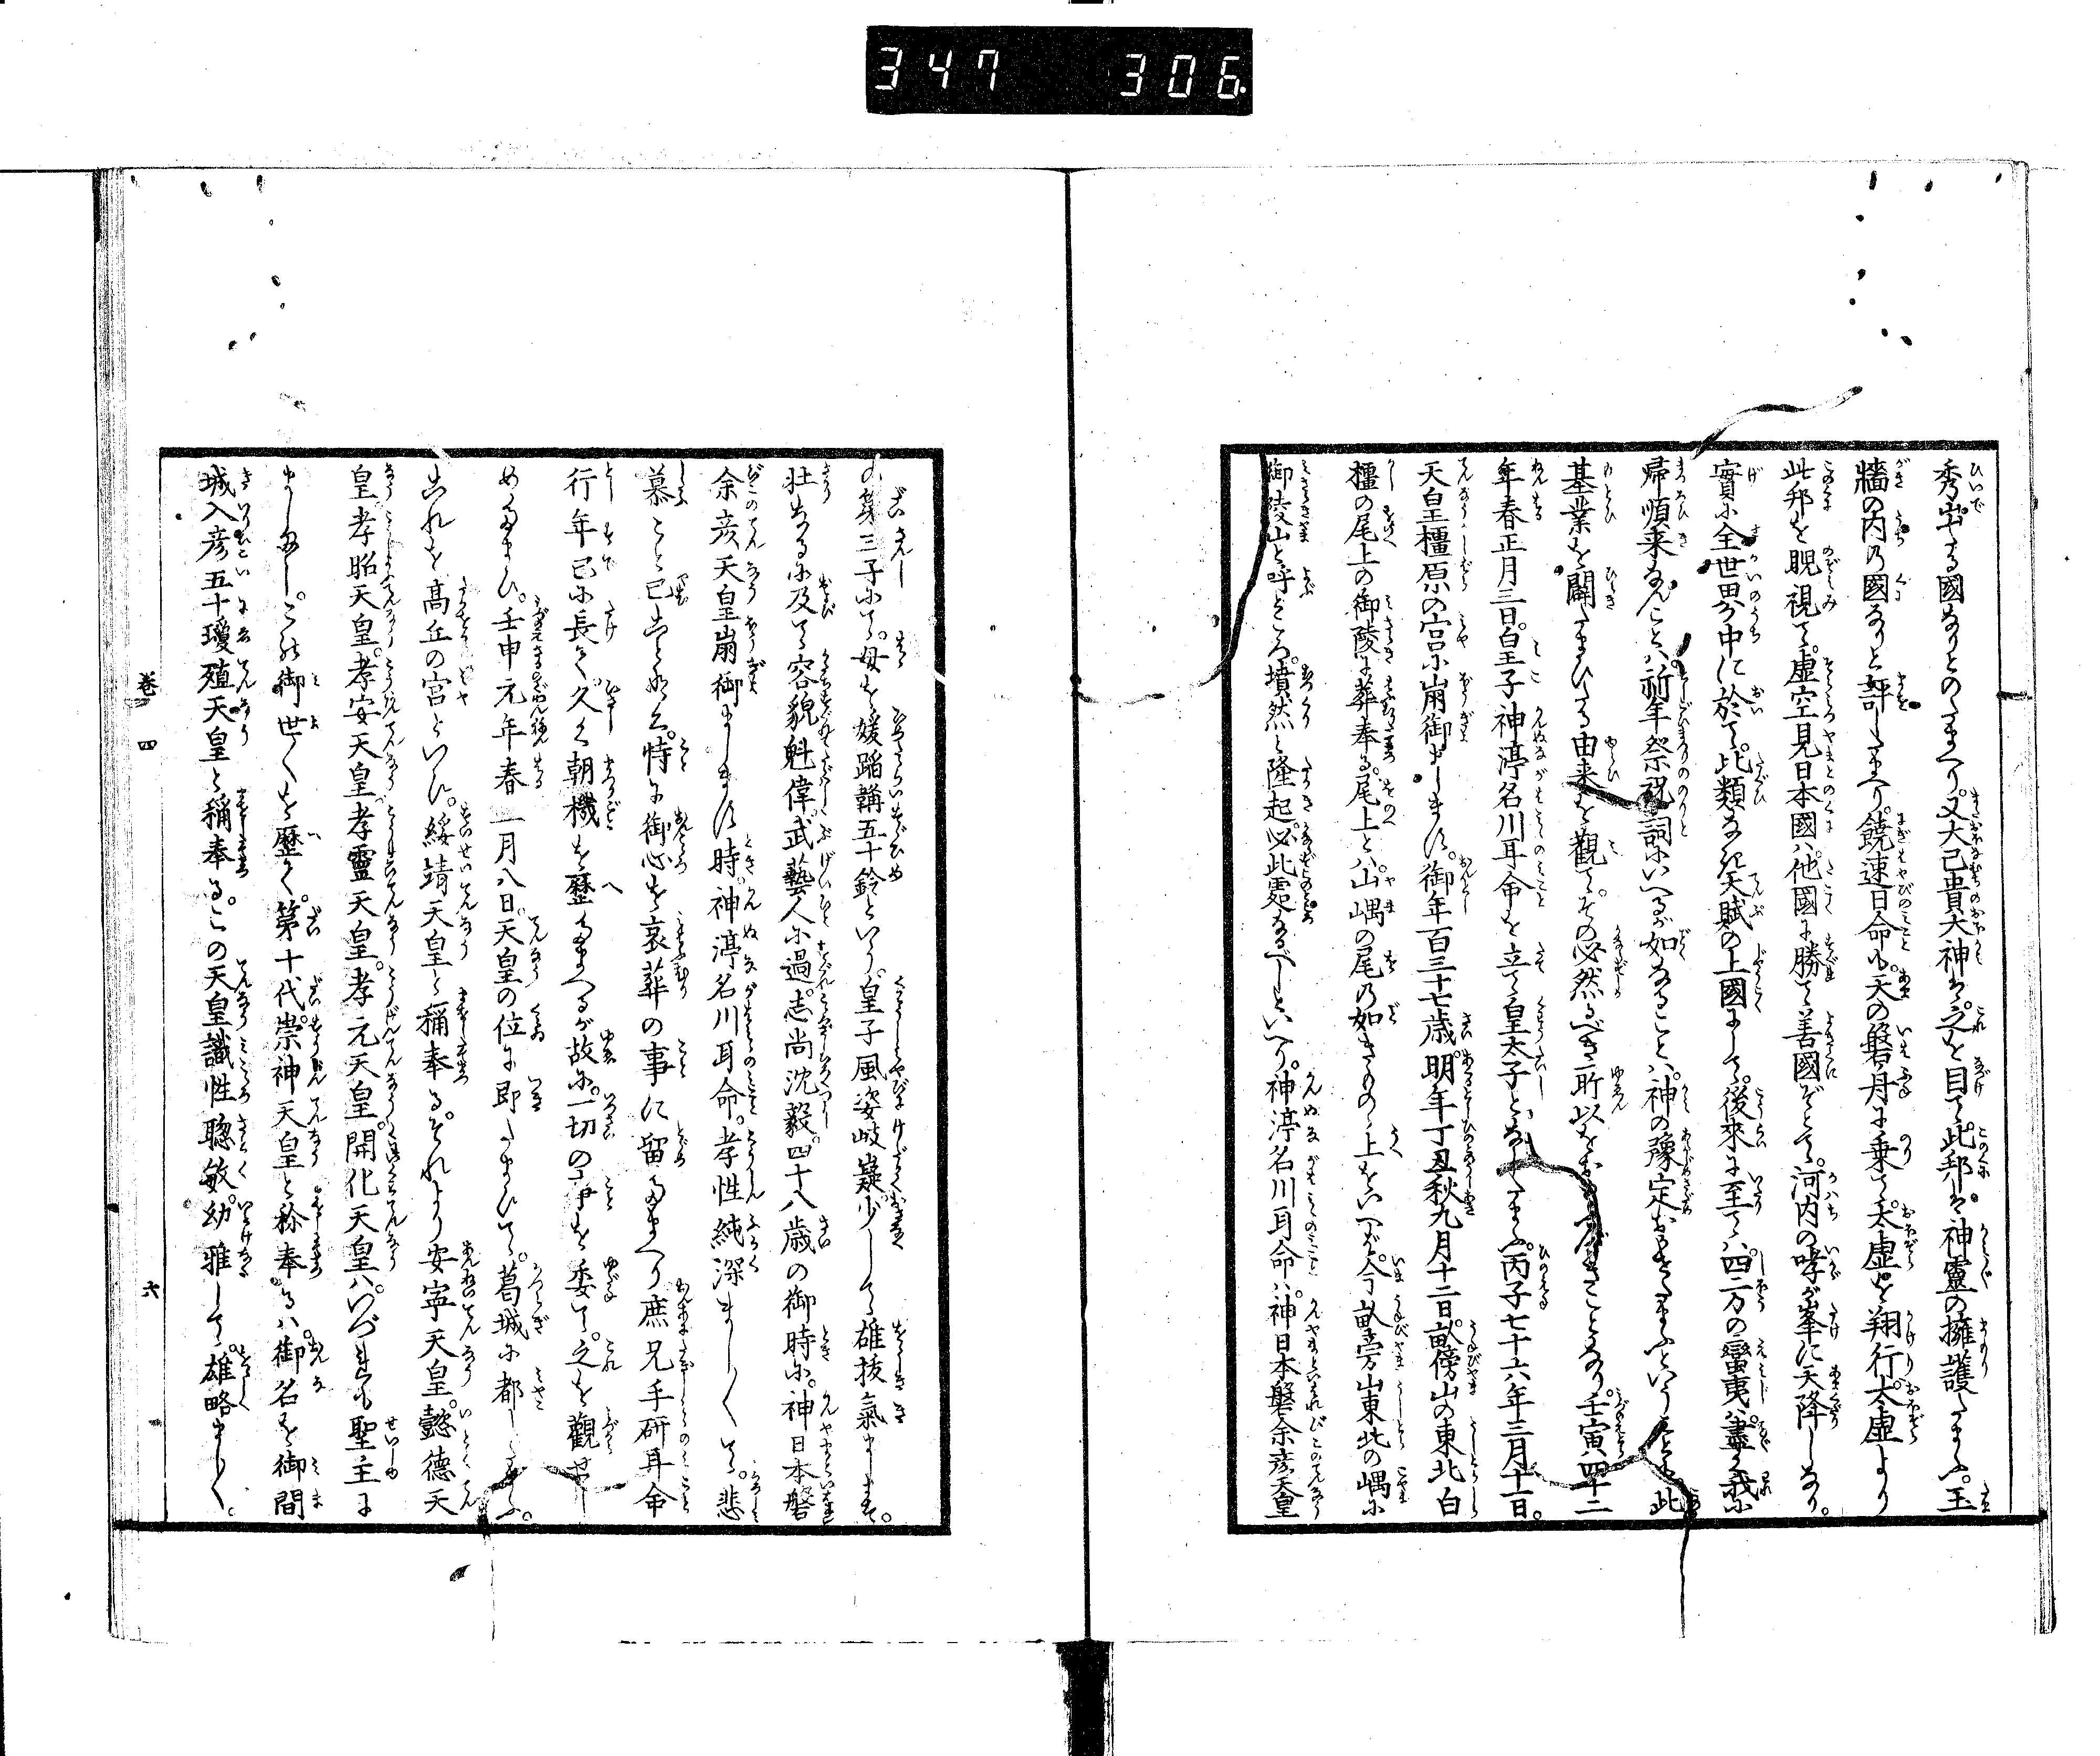 347 306
秀出たる國なりとのたまへり。又大己貴大神は之を目て此邦は神靈の擁護たまふ。玉
牆の内の國なりと評したまへり。饒速日命も天の磐舟に乗て太虚を翔行。太虚より
此邦を睨視て。虚空見日本國ハ他國に勝て善國ぞとて。河内の哮が峯に天降しなり。
實に全世界中に於て。此類なき天賦の上國にして。後來に至てハ四方の蠻夷ハ盡く我に
歸順来なんことハ。祈年祭祝詞にいへるが如なることハ。神の豫定おきたまふといふことは此
基業を闢たまひたる由来を觀て。その必然るべき所以をおもふべきことなり。壬寅四十二
年春正月三日。皇子神渟名川耳命を立て皇太子となしたまふ。丙子七十六年三月十一日。
天皇橿原の宮に崩御まします。御年百三十七歳。明年丁丑秋九月十二日。畝傍山の東北白
橿の尾上の御陵に葬奉る。尾上とハ。山嵎の尾の如きものゝ上をいへバ。今畝旁山東北の嵎に
御陵山と呼ところ。墳然と隆起。必此處なるべしといへり。神渟名川耳命ハ。神日本磐余彦天皇
の第三子にて。母を媛蹈鞴五十鈴といふ。皇子風姿岐嶷。少して雄抜氣まします。
壮なるに及て容貌魁偉。武藝人に過。志尚沈毅。四十八歳の御時に。神日本磐
余彦天皇崩御まします時。神渟名川耳命。孝性純深ましまして。悲
慕こと已ことなく。特に御心を哀葬の事に留たまへり。庶兄手研耳命
行年已に長て久く朝機を歴たまへるが故に。一切の事を委て。之を觀せし
めたまひ。壬申元年春一月八日。天皇の位に即たまひて。葛城に都したまふ。
これを高丘の宮といひ。綏靖天皇と稱奉る。それより安寧天皇。懿德天
皇。孝昭天皇。孝安天皇。孝靈天皇。孝元天皇。開化天皇ハ。いづれも聖主に
ましまし。この御世々を歴て。第十代崇神天皇と称奉るハ。御名を御間
城入彦五十瓊殖天皇と稱奉る。この天皇識性聰敏。幼雅して。雄略まし〳〵。
巻四 六